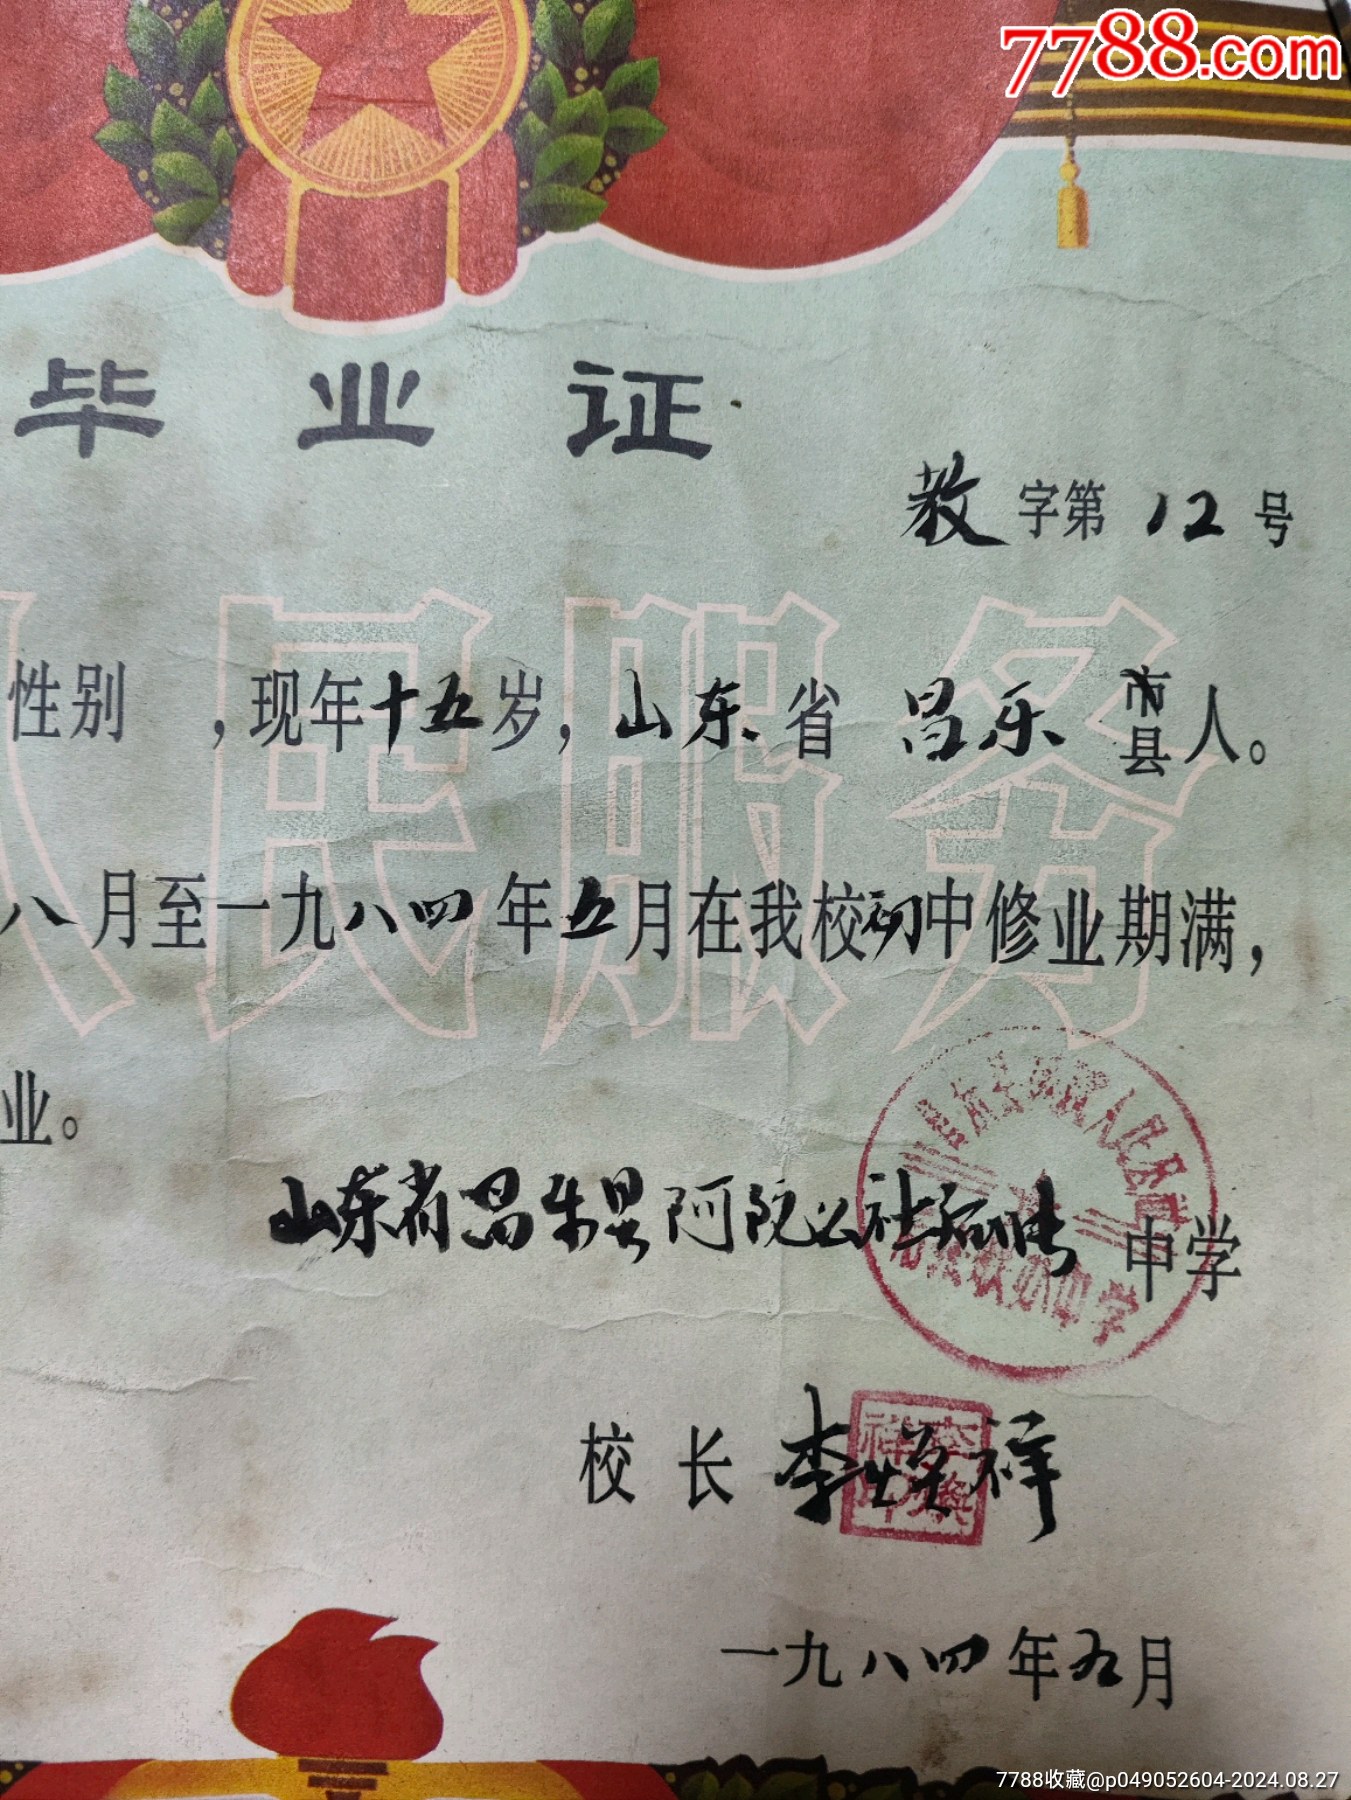 7788.com
毕业证
教字第12号
人民服务
性别 ，现年十五岁，山东省昌乐市县人。
八月至一九八四年五月在我校初中修业期满，
业。
山东省昌乐县阿陀公社 中学
人民
联办中学
校长 李焕祥
李焕祥印
一九八四年五月
7788收藏@p049052604-2024.08.27